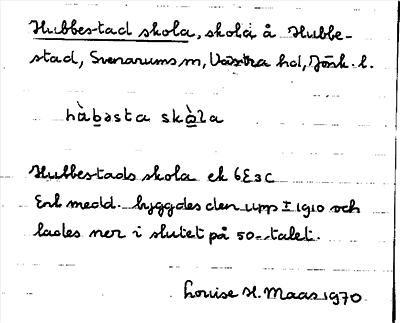 Hubbestad skola, skola å Hubbe-
stad, Svenarums sn, Västra hd, Jönk. l.
hàb̲əsta skà̲la
Hubbestads skola ek 6E3c
Enl medd. byggdes den upp ± 1910 och
lades ner i slutet på 50-talet.
Louise H. Maas 1970